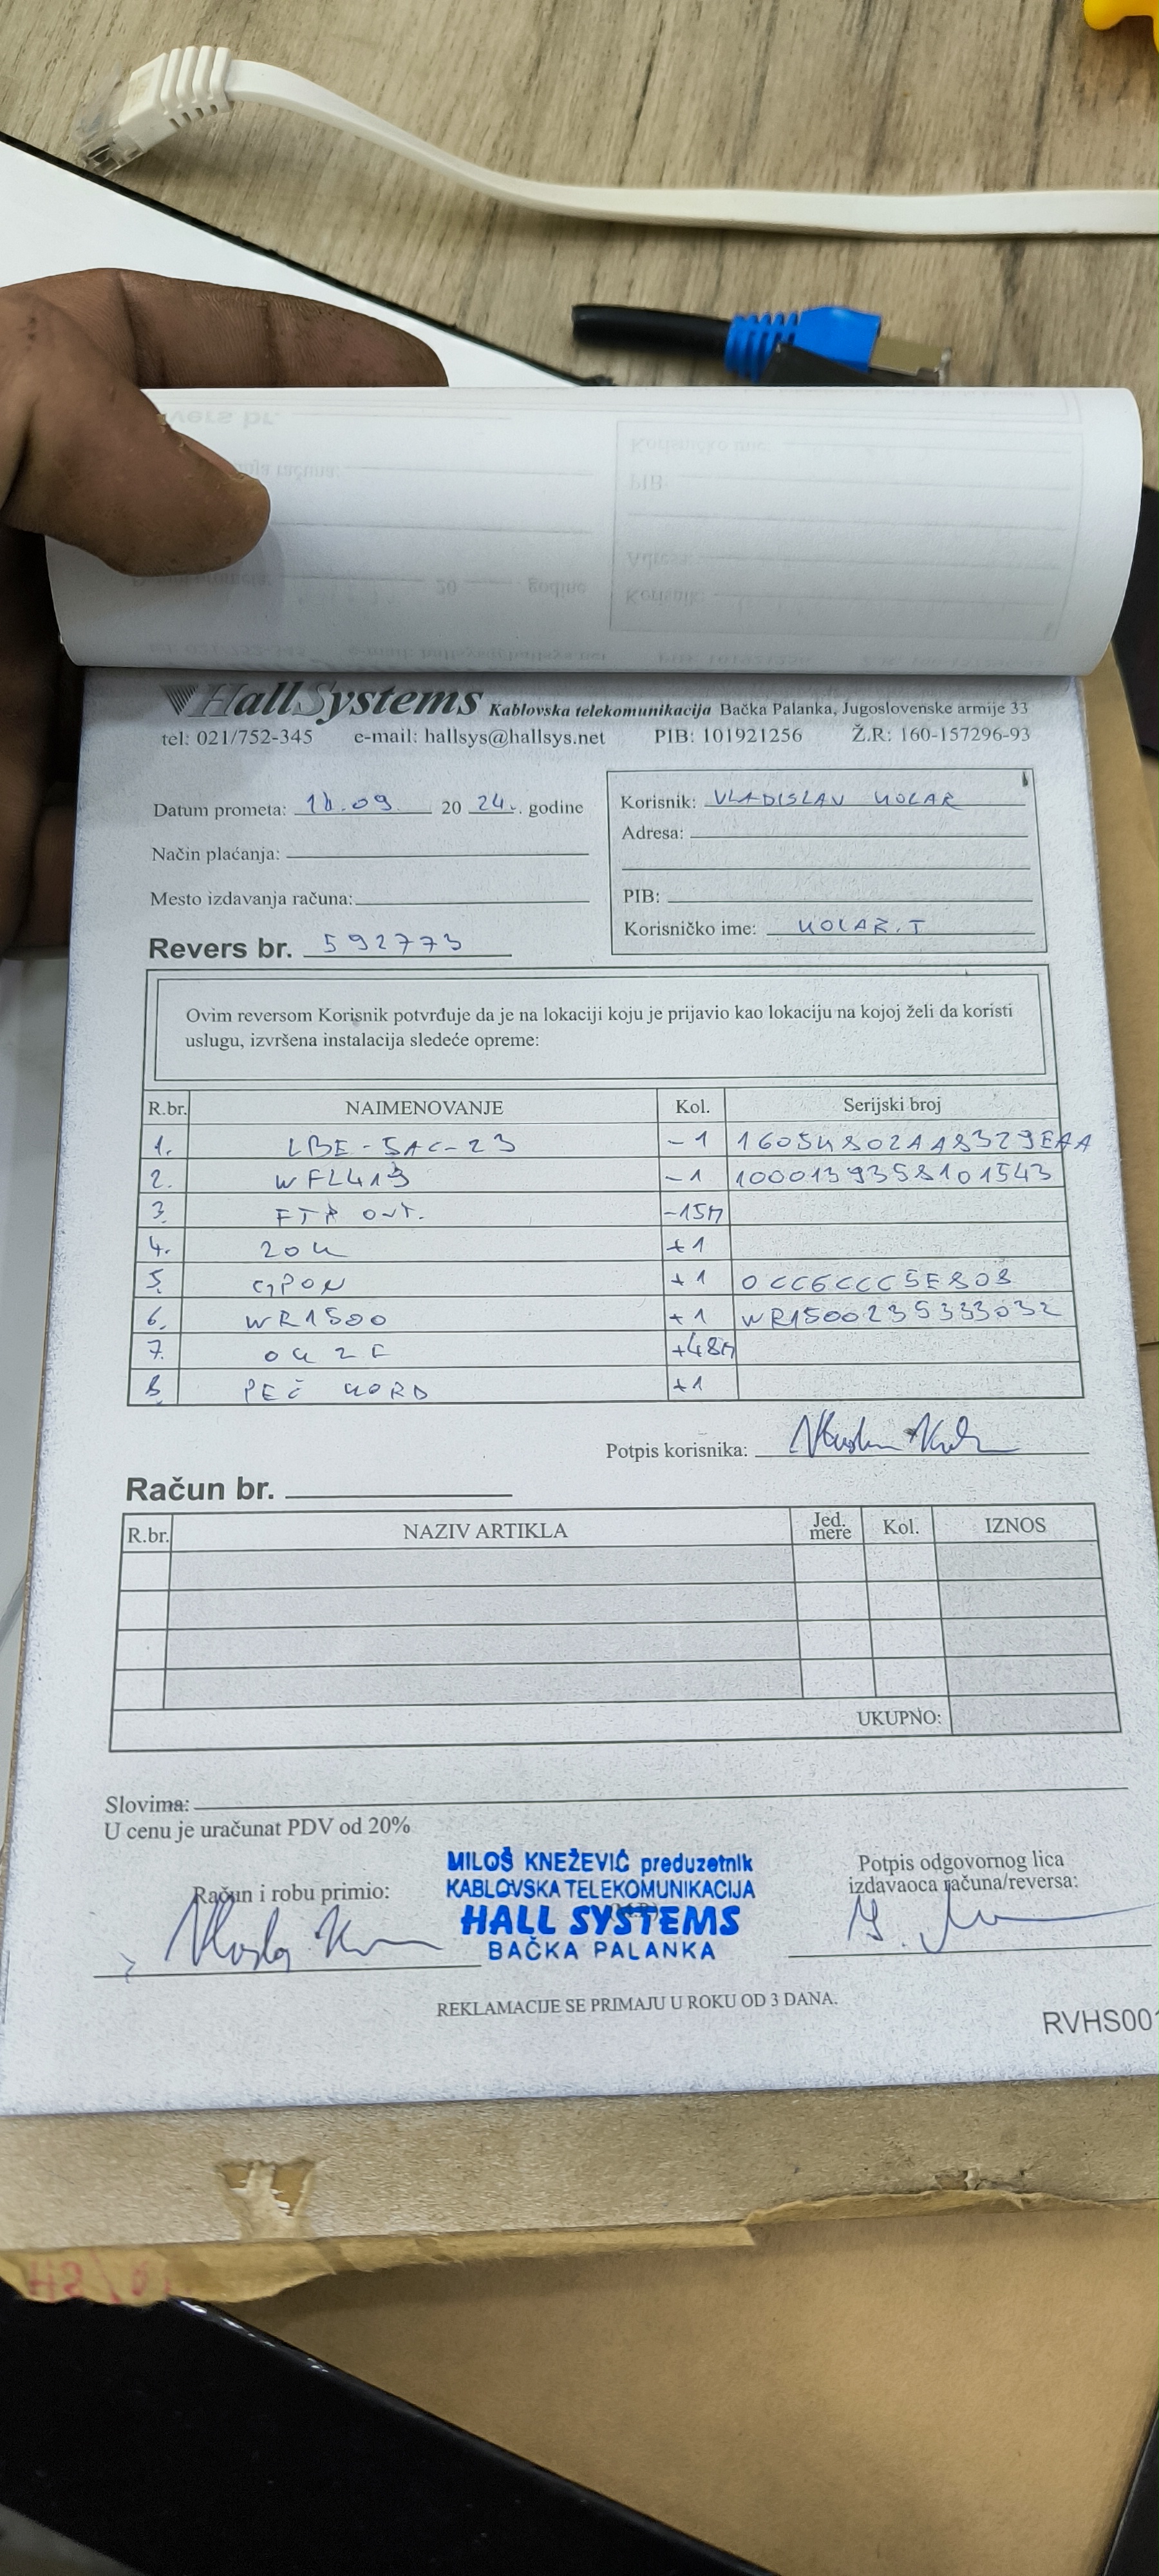 HallSystems Kablovska telekomunikacija Bačka Palanka, Jugoslovenske armije 33
tel: 021/752-345 e-mail: hallsys@hallsys.net PIB: 101921256 Ž.R: 160-157296-93
Datum prometa: 18.09. 20 24. godine
Način plaćanja:
Mesto izdavanja računa:
Revers br. 592773
Korisnik: VLADISLAV KOLAR
Adresa:
PIB:
Korisničko ime: KOLAR.T
Ovim reversom Korisnik potvrđuje da je na lokaciji koju je prijavio kao lokaciju na kojoj želi da koristi
uslugu, izvršena instalacija sledeće opreme:
R.br. NAIMENOVANJE Kol. Serijski broj
1. LBE-5AC-23 -1 1605K802AA8329EAA
2. WFL413 -1 1000139358101543
3. FTP OUT. -15M
4. ZOK +1
5. GPON +1 0CC6CCC5E808
6. WR1500 +1 WR1500235333032
7. OK 2F +48M
8. PEČ KORD +1
Potpis korisnika:
Račun br.
R.br. NAZIV ARTIKLA Jed. mere Kol. IZNOS
UKUPNO:
Slovima:
U cenu je uračunat PDV od 20%
Račun i robu primio:
MILOŠ KNEŽEVIĆ preduzetnik
KABLOVSKA TELEKOMUNIKACIJA
HALL SYSTEMS
BAČKA PALANKA
Potpis odgovornog lica
izdavaoca računa/reversa:
REKLAMACIJE SE PRIMAJU U ROKU OD 3 DANA.
RVHS001